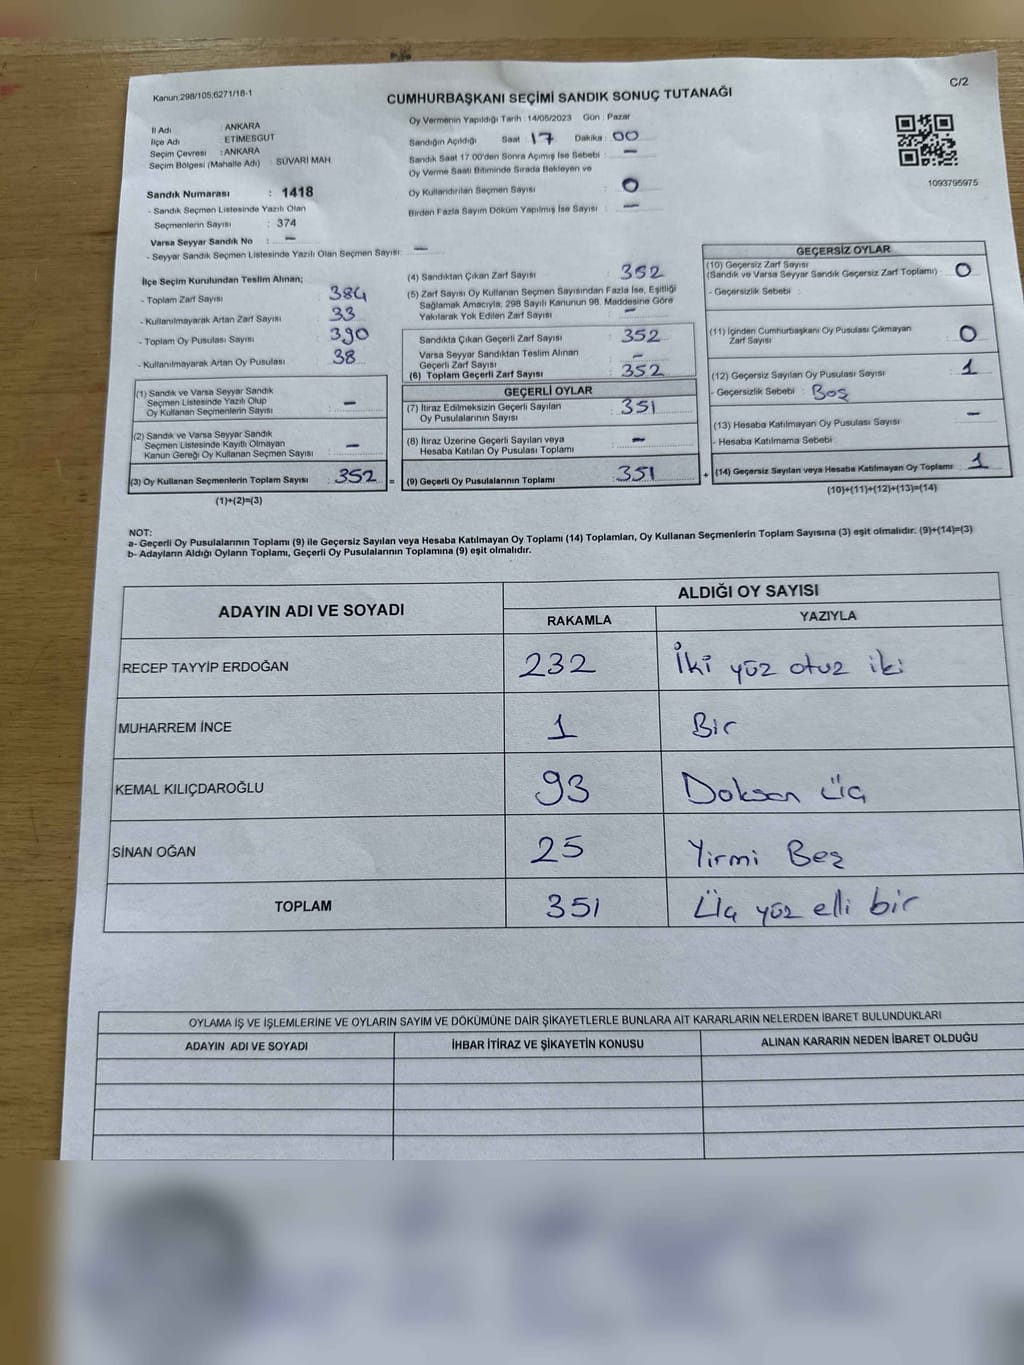 Kanun;298/105;6271/18-1
C/2
CUMHURBAŞKANI SEÇİMİ SANDIK SONUÇ TUTANAĞI
İl Adı : ANKARA
İlçe Adı : ETİMESGUT
Seçim Çevresi : ANKARA
Seçim Bölgesi (Mahalle Adı) : SÜVARİ MAH
Sandık Numarası : 1418
- Sandık Seçmen Listesinde Yazılı Olan
Seçmenlerin Sayısı : 374
Varsa Seyyar Sandık No : –
- Seyyar Sandık Seçmen Listesinde Yazılı Olan Seçmen Sayısı : –
Oy Vermenin Yapıldığı Tarih : 14/05/2023 Gün : Pazar
Sandığın Açıldığı Saat : 17 Dakika : 00
Sandık Saat 17:00'den Sonra Açımış İse Sebebi : –
Oy Verme Saati Bitiminde Sırada Bekleyen ve
Oy Kullandırılan Seçmen Sayısı : 0
Birden Fazla Sayım Döküm Yapılmış İse Sayısı : –
1093795975
İlçe Seçim Kurulundan Teslim Alınan;
- Toplam Zarf Sayısı : 384
- Kullanılmayarak Artan Zarf Sayısı : 33
- Toplam Oy Pusulası Sayısı : 390
- Kullanılmayarak Artan Oy Pusulası : 38
(1) Sandık ve Varsa Seyyar Sandık
Seçmen Listesinde Yazılı Olup
Oy Kullanan Seçmenlerin Sayısı : –
(2) Sandık ve Varsa Seyyar Sandık
Seçmen Listesinde Kayıtlı Olmayan
Kanun Gereği Oy Kullanan Seçmen Sayısı : –
(3) Oy Kullanan Seçmenlerin Toplam Sayısı : 352 =
(1)+(2)=(3)
(4) Sandıktan Çıkan Zarf Sayısı : 352
(5) Zarf Sayısı Oy Kullanan Seçmen Sayısından Fazla İse, Eşitliği
Sağlamak Amacıyla; 298 Sayılı Kanunun 98. Maddesine Göre
Yakılarak Yok Edilen Zarf Sayısı : –
Sandıkta Çıkan Geçerli Zarf Sayısı : 352
Varsa Seyyar Sandıktan Teslim Alınan
Geçerli Zarf Sayısı : –
(6) Toplam Geçerli Zarf Sayısı : 352
GEÇERLİ OYLAR
(7) İtiraz Edilmeksizin Geçerli Sayılan
Oy Pusulalarının Sayısı : 351
(8) İtiraz Üzerine Geçerli Sayılan veya
Hesaba Katılan Oy Pusulası Toplamı : –
(9) Geçerli Oy Pusulalarının Toplamı : 351 +
GEÇERSİZ OYLAR
(10) Geçersiz Zarf Sayısı
(Sandık ve Varsa Seyyar Sandık Geçersiz Zarf Toplamı) : 0
- Geçersizlik Sebebi :
(11) İçinden Cumhurbaşkanı Oy Pusulası Çıkmayan
Zarf Sayısı : 0
(12) Geçersiz Sayılan Oy Pusulası Sayısı : 1
- Geçersizlik Sebebi : Boş
(13) Hesaba Katılmayan Oy Pusulası Sayısı : –
- Hesaba Katılmama Sebebi :
(14) Geçersiz Sayılan veya Hesaba Katılmayan Oy Toplamı : 1
(10)+(11)+(12)+(13)=(14)
NOT:
a- Geçerli Oy Pusulalarının Toplamı (9) ile Geçersiz Sayılan veya Hesaba Katılmayan Oy Toplamı (14) Toplamları, Oy Kullanan Seçmenlerin Toplam Sayısına (3) eşit olmalıdır. (9)+(14)=(3)
b- Adayların Aldığı Oyların Toplamı, Geçerli Oy Pusulalarının Toplamına (9) eşit olmalıdır.
ADAYIN ADI VE SOYADI ALDIĞI OY SAYISI
RAKAMLA YAZIYLA
RECEP TAYYİP ERDOĞAN 232 İki yüz otuz iki
MUHARREM İNCE 1 Bir
KEMAL KILIÇDAROĞLU 93 Doksan Üç
SİNAN OĞAN 25 Yirmi Beş
TOPLAM 351 Üç yüz elli bir
OYLAMA İŞ VE İŞLEMLERİNE VE OYLARIN SAYIM VE DÖKÜMÜNE DAİR ŞİKAYETLERLE BUNLARA AİT KARARLARIN NELERDEN İBARET BULUNDUKLARI
ADAYIN ADI VE SOYADI İHBAR İTİRAZ VE ŞİKAYETİN KONUSU ALINAN KARARIN NEDEN İBARET OLDUĞU